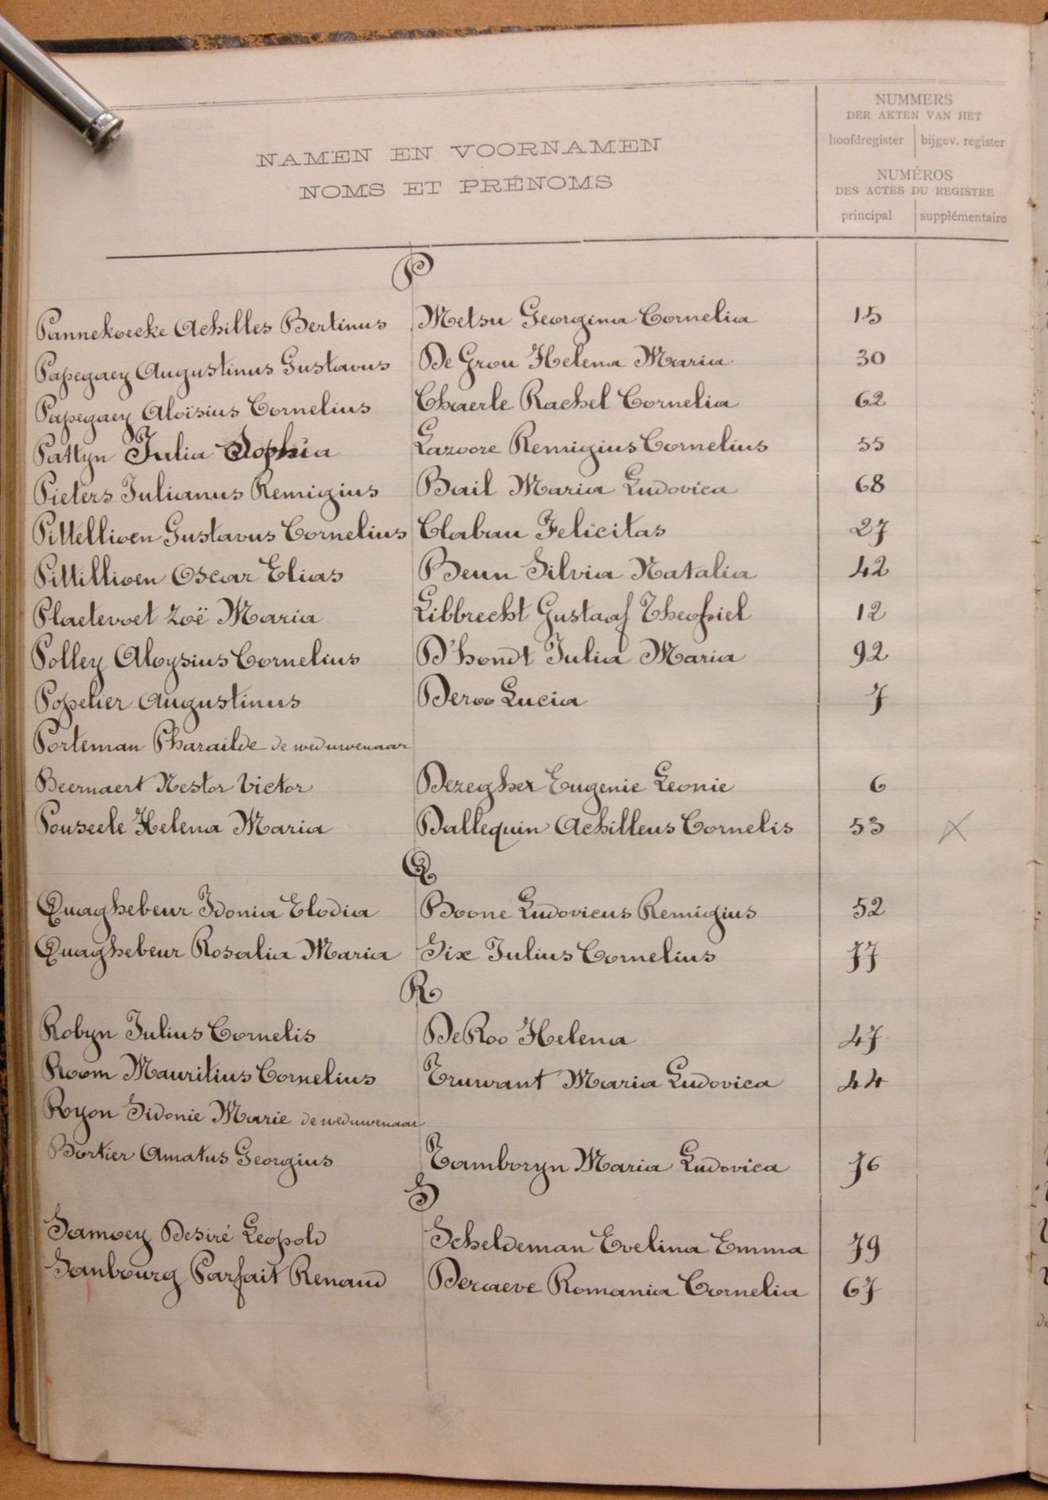 NUMMERS
DER AKTEN VAN HET
hoofdregister bijgev. register
NAMEN EN VOORNAMEN
NOMS ET PRÉNOMS
NUMÉROS
DES ACTES DU REGISTRE
principal supplémentaire
P
Pannekoecke Achilles Bertinus Metsu Georgina Cornelia 15
Papegaey Augustinus Gustavus De Grou Helena Maria 30
Papegaey Aloïsius Cornelius Charle Rachel Cornelia 62
Pattyn Julia Sophia Lazoore Remigius Cornelius 55
Pieters Julianus Remigius Bail Maria Ludovica 68
Pittellioen Gustavus Cornelius Clabau Felicitas 27
Pittillioen Oscar Elias Beun Silvia Natalia 42
Plaetevoet Zoë Maria Libbrecht Gustaaf Theofiel 12
Polley Aloysius Cornelius D'hondt Julia Maria 92
Popelier Augustinus Deroo Lucia 7
Porteman Pharailde de weduwenaar
Beernaert Nestor Victor Dezegher Eugenie Leonie 6
Pouseele Helena Maria Dallequin Achilleus Cornelis 53 X
Q
Quaghebeur Idonia Elodia Boone Ludovicus Remigius 52
Quaghebeur Rosalia Maria Six Julius Cornelius 77
R
Robyn Julius Cornelis De Roo Helena 47
Room Mauritius Cornelius Truwant Maria Ludovica 44
Royon Sidonie Marie de weduwenaar
Bortier Amatus Georgius Tamboryn Maria Ludovica 76
S
Samoey Desiré Leopold Scheldeman Evelina Emma 79
Sanbourg Parfait Renaud Deraeve Romania Cornelia 67